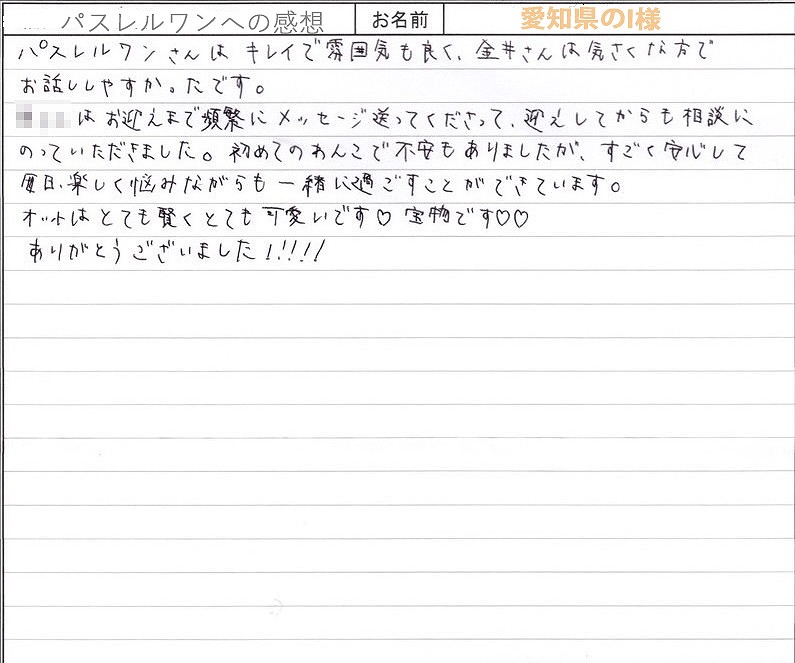 パスレルワンへの感想 お名前 愛知県のI様
パスレルワンさんは キレイで雰囲気も良く、金井さんは気さくな方で
お話ししやすかったです。
はお迎えまで頻繁にメッセージ送ってくださって、迎えしてからも相談に
のっていただきました。初めてのわんこで不安もありましたが、すごく安心して
毎日、楽しく悩みながらも一緒に過ごすことができています。
オットはとても賢くとても可愛いです♡ 宝物です♡♡
ありがとうございました!!!!!